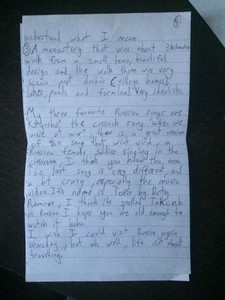 understand what I mean.
③ A monastery that was about 3 kilometers
walk from a small town, beautiful
design and the walk there was very
scenic past dachas (village homes)
lakes, ponds and farmland. Very idealistic
My three favorite Russian songs are
"Katyusha" the cossack song "when we
were at war", there is a great version
of this song that went viral, a
Russian female soldier singing in the
classroom, I think you know this one.
The last song is very different, and
a bit crazy, especially the music
video. It's name is by Ruby
I think its spelled
in Russian I hope you are old enough to
watch it haha
I wish I could visit Russia again
someday, but oh well, life isn't about
travelling.